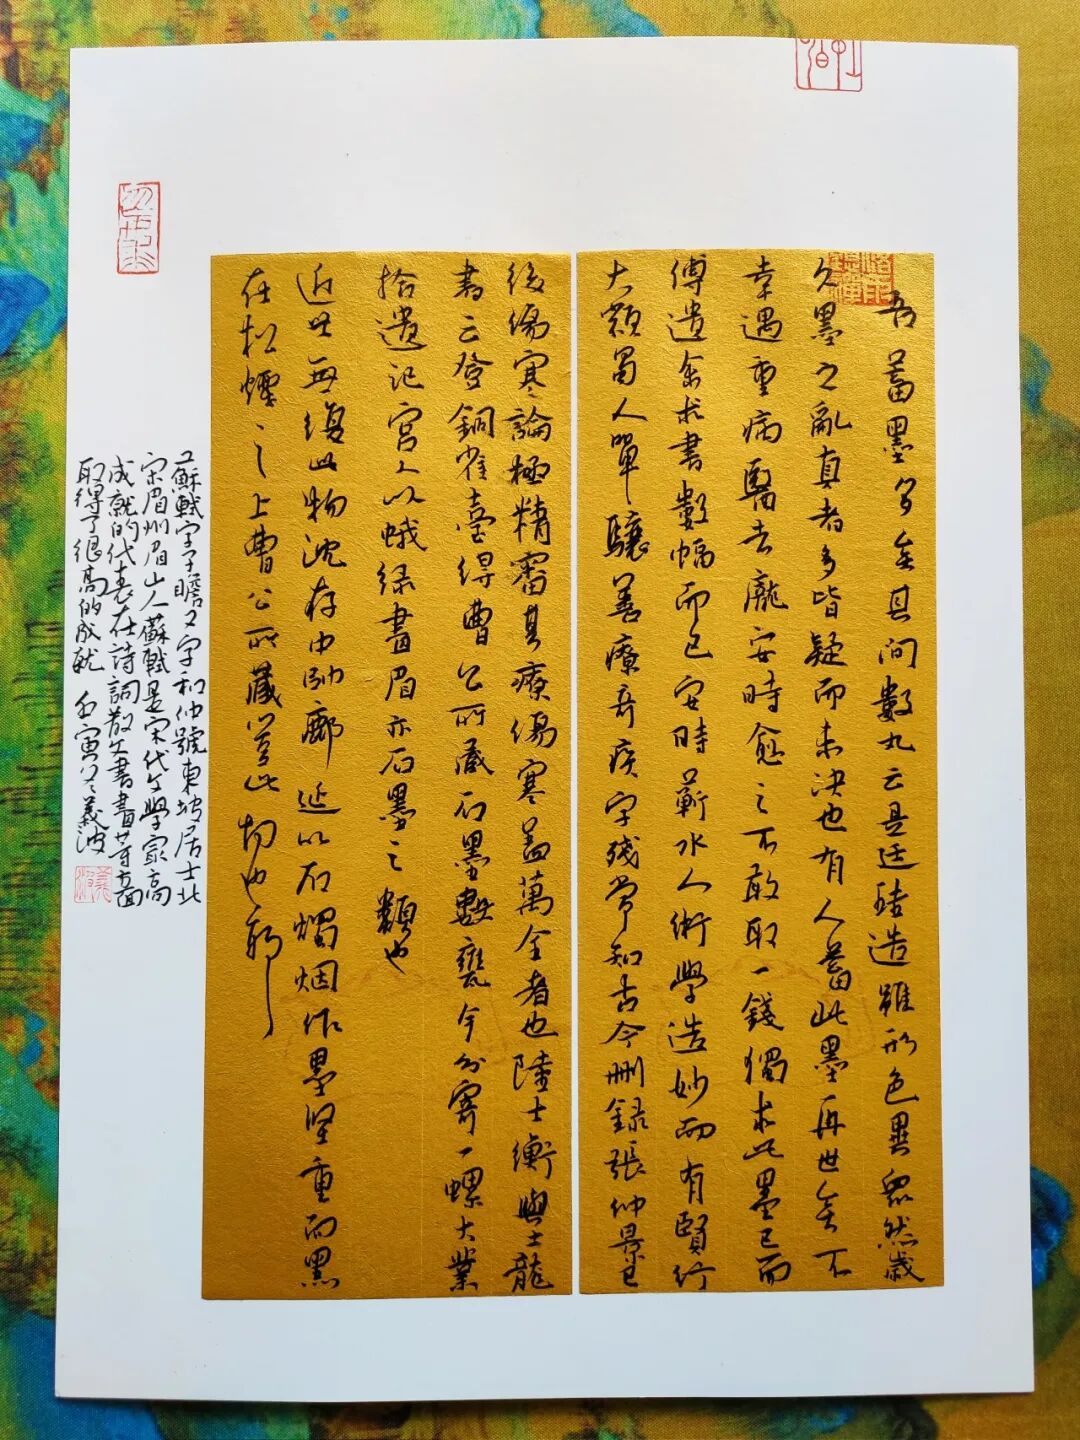 吾蓄墨多矣其间數丸云是廷珪造雖形色異衆然歲
久墨之亂真者多皆疑而未决也有人蓄此墨再世矣不
幸遇重病醫者龐安時愈之不敢取一錢獨求此墨已而
傳遺余求書數幅而已安時蘄水人術學造妙而有賢行
大類蜀人單驤善療奇疾字殘常知古今删録張仲景已
後傷寒論極精審其療傷寒蓋萬全者也陸士衡與士龍
書云登銅雀臺得曹公所藏石墨數甕今分寄一螺大業
拾遺記宫人以蛾绿畫眉亦石墨之類也
近世無復此物沈存中帥鄜延以石燭烟作墨坚重而黑
在松煙之上曹公所藏豈此物也耶
蘇軾字子瞻又字和仲號東坡居士北
宋眉州眉山人蘇軾是宋代文學最高
成就的代表在詩詞散文書畫等方面
取得了很高的成就 壬寅冬義波